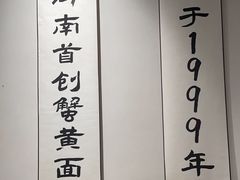 南首创蟹黄面
于1999年